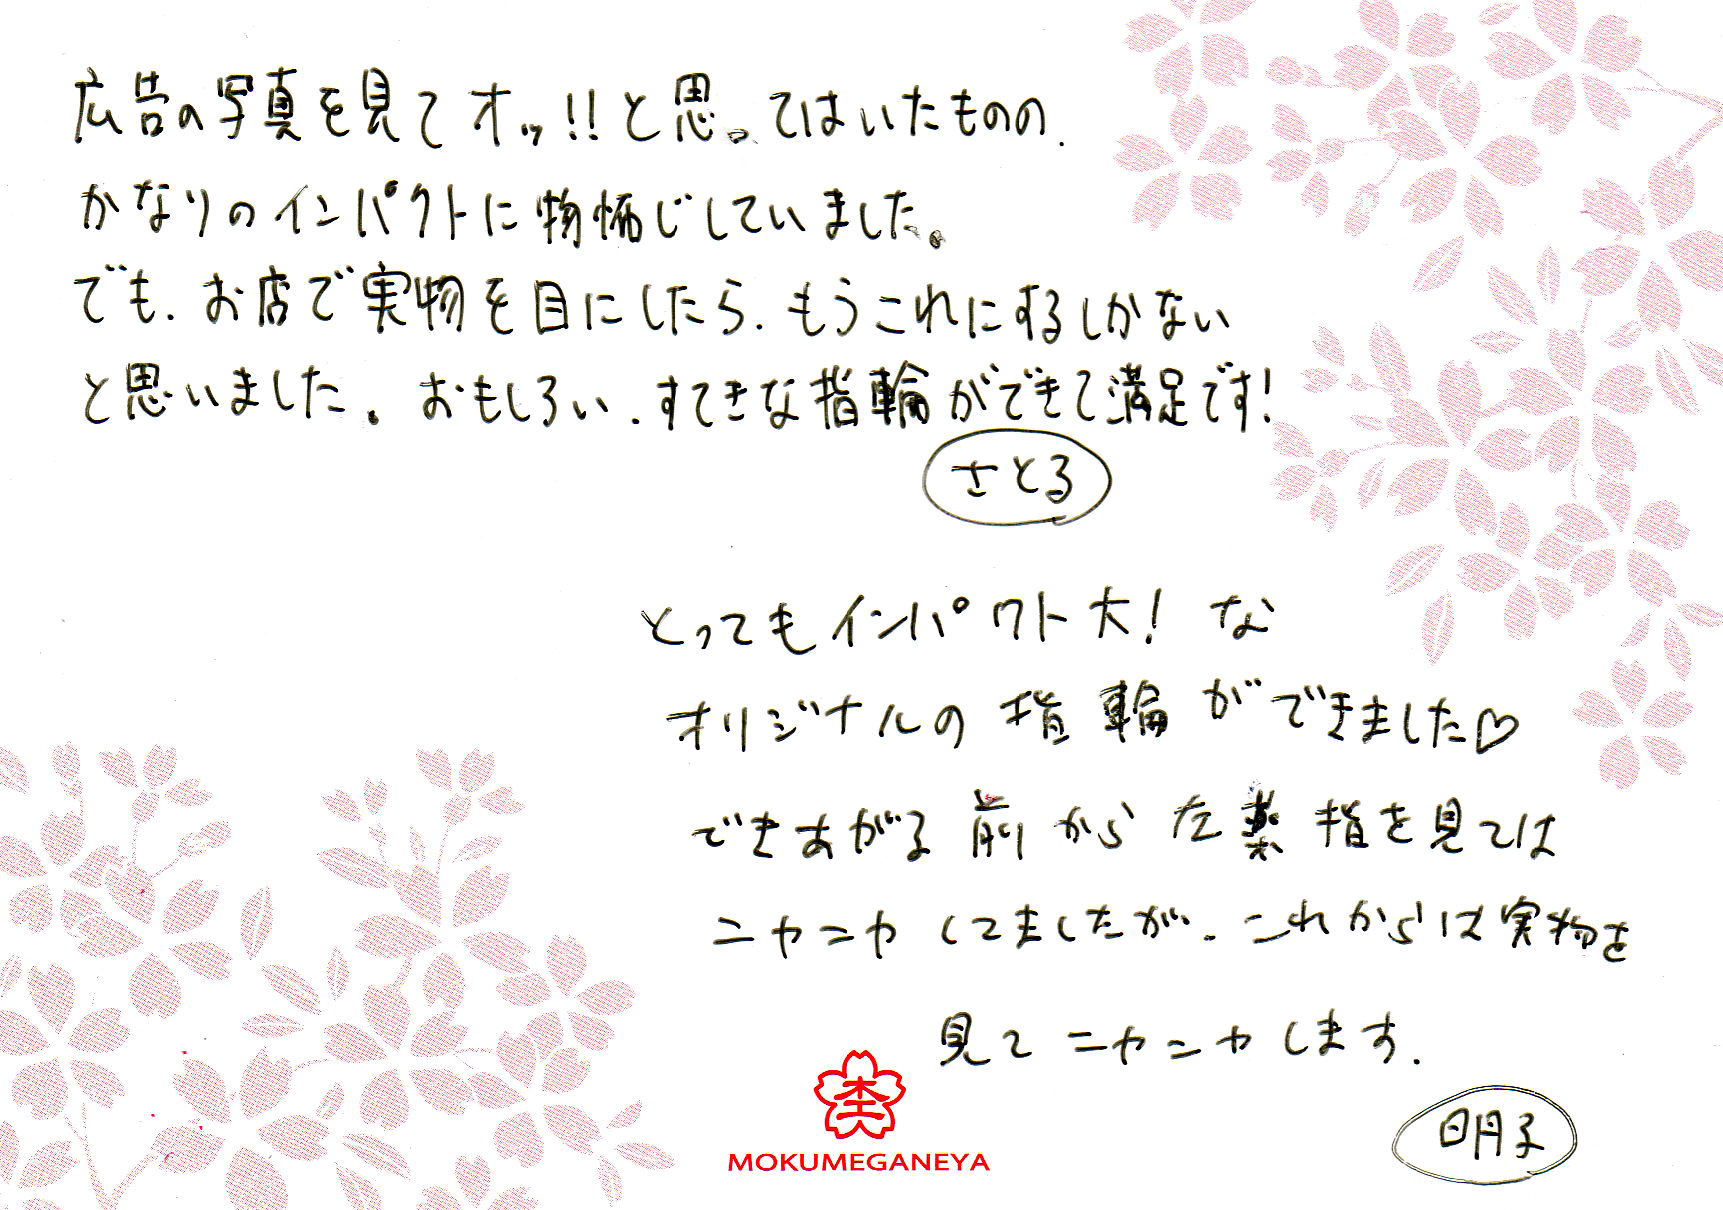 広告の写真を見てオッ!!と思ってはいたものの、
かなりのインパクトに物怖じしていました。
でも、お店で実物を目にしたら、もうこれにするしかない
と思いました。おもしろい、すてきな指輪ができて満足です!
さとる
とってもインパクト大! な
オリジナルの指輪ができました♡
できあがる前から左薬指を見ては
ニヤニヤしてましたが、これからは実物を
見てニヤニヤします.
明子
杢
MOKUMEGANEYA